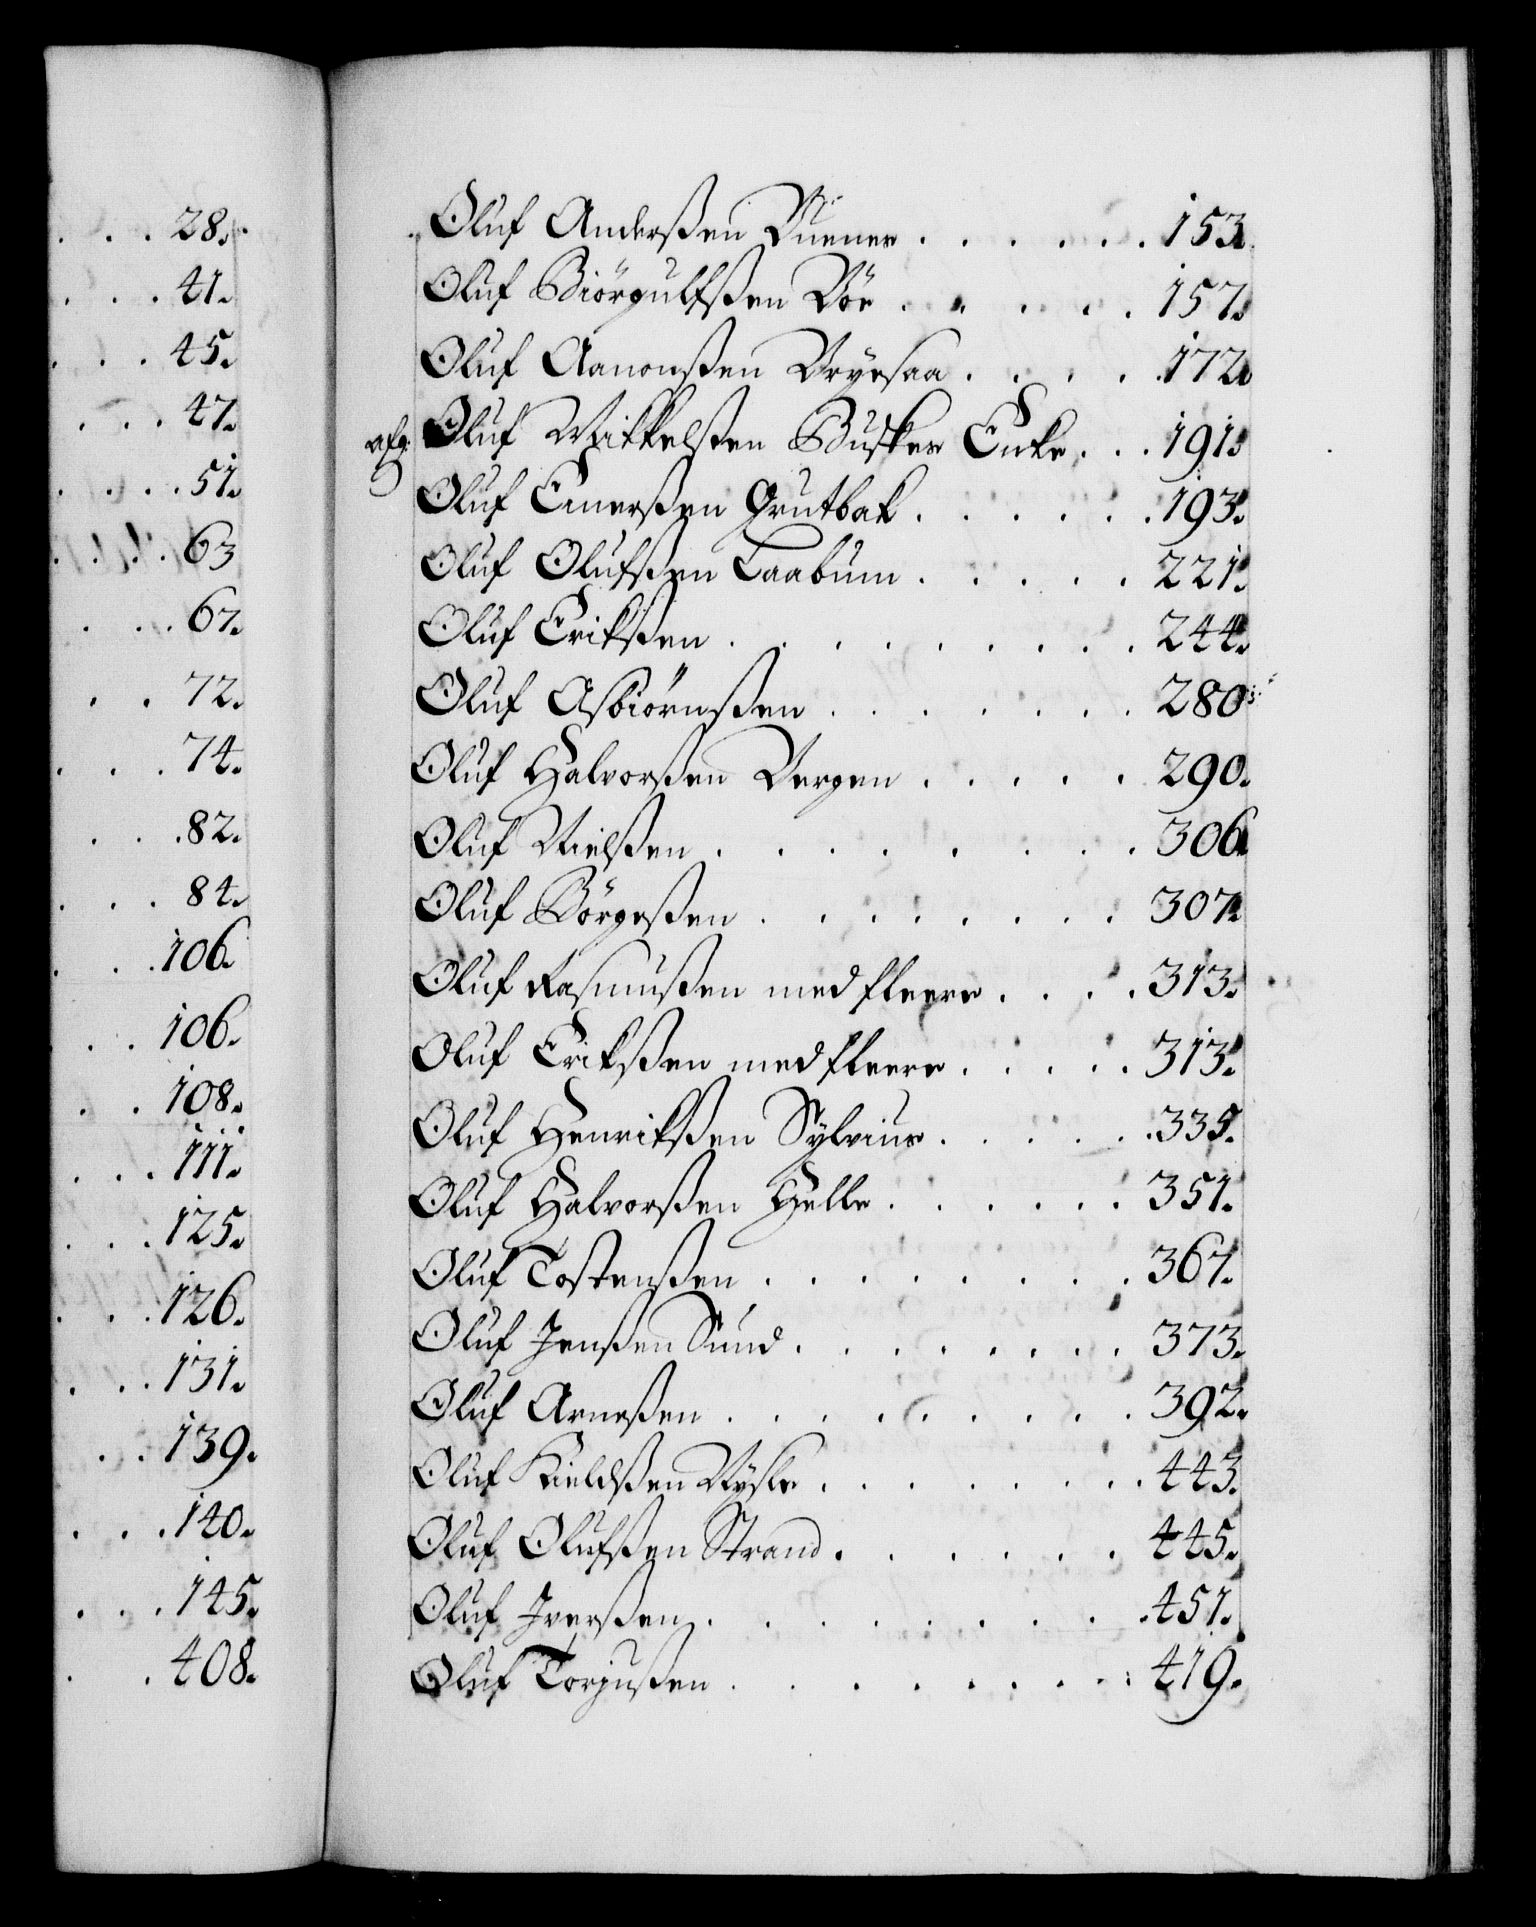 28.
41.
45.
47.
51.
63
67.
72.
74.
82.
84.
106.
106.
108.
111.
125.
126.
131.
139.
140.
145.
408.
Oluf Anderßen . . . . . . 153.
Oluf Biörgulfßen Röe . . . . . 157.
Oluf Aanonßen . . . . 172.
Oluf Mikkelsten Buskes Enke . . . 191.
Oluf Einerßen Grutbak . . . . . . 193.
Oluf Olufßen Laabum . . . . . 221.
Oluf Erikßen . . . . . . . . 244.
Oluf Asbiörnßen . . . . . . . 280.
Oluf Halvorßen Bergen . . . . . 290.
Oluf Nielßen . . . . . . . . 306.
Oluf Börgeßen . . . . . . . . 307.
Oluf Rasmußen med fleere . . . . 313.
Oluf Erikßen med fleere . . . . . 313.
Oluf Henrikßen Sylvius . . . . . 335.
Oluf Halvorßen Helle . . . . . . 351.
Oluf Tostenßen . . . . . . . . 367.
Oluf Jenßen Sund . . . . . . . . 373.
Oluf Arneßen . . . . . . . . . 392.
Oluf Kieldßen . . . . . . . 443.
Oluf Olufßen Strand . . . . . . 445.
Oluf Iverßen . . . . . . . . . 451.
Oluf Torjußen . . . . . . . . . 419.